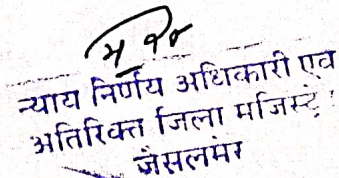 न्याय निर्णय अधिकारी एव
अतिरिक्त जिला मजिस्ट्रे
जैसलमेर